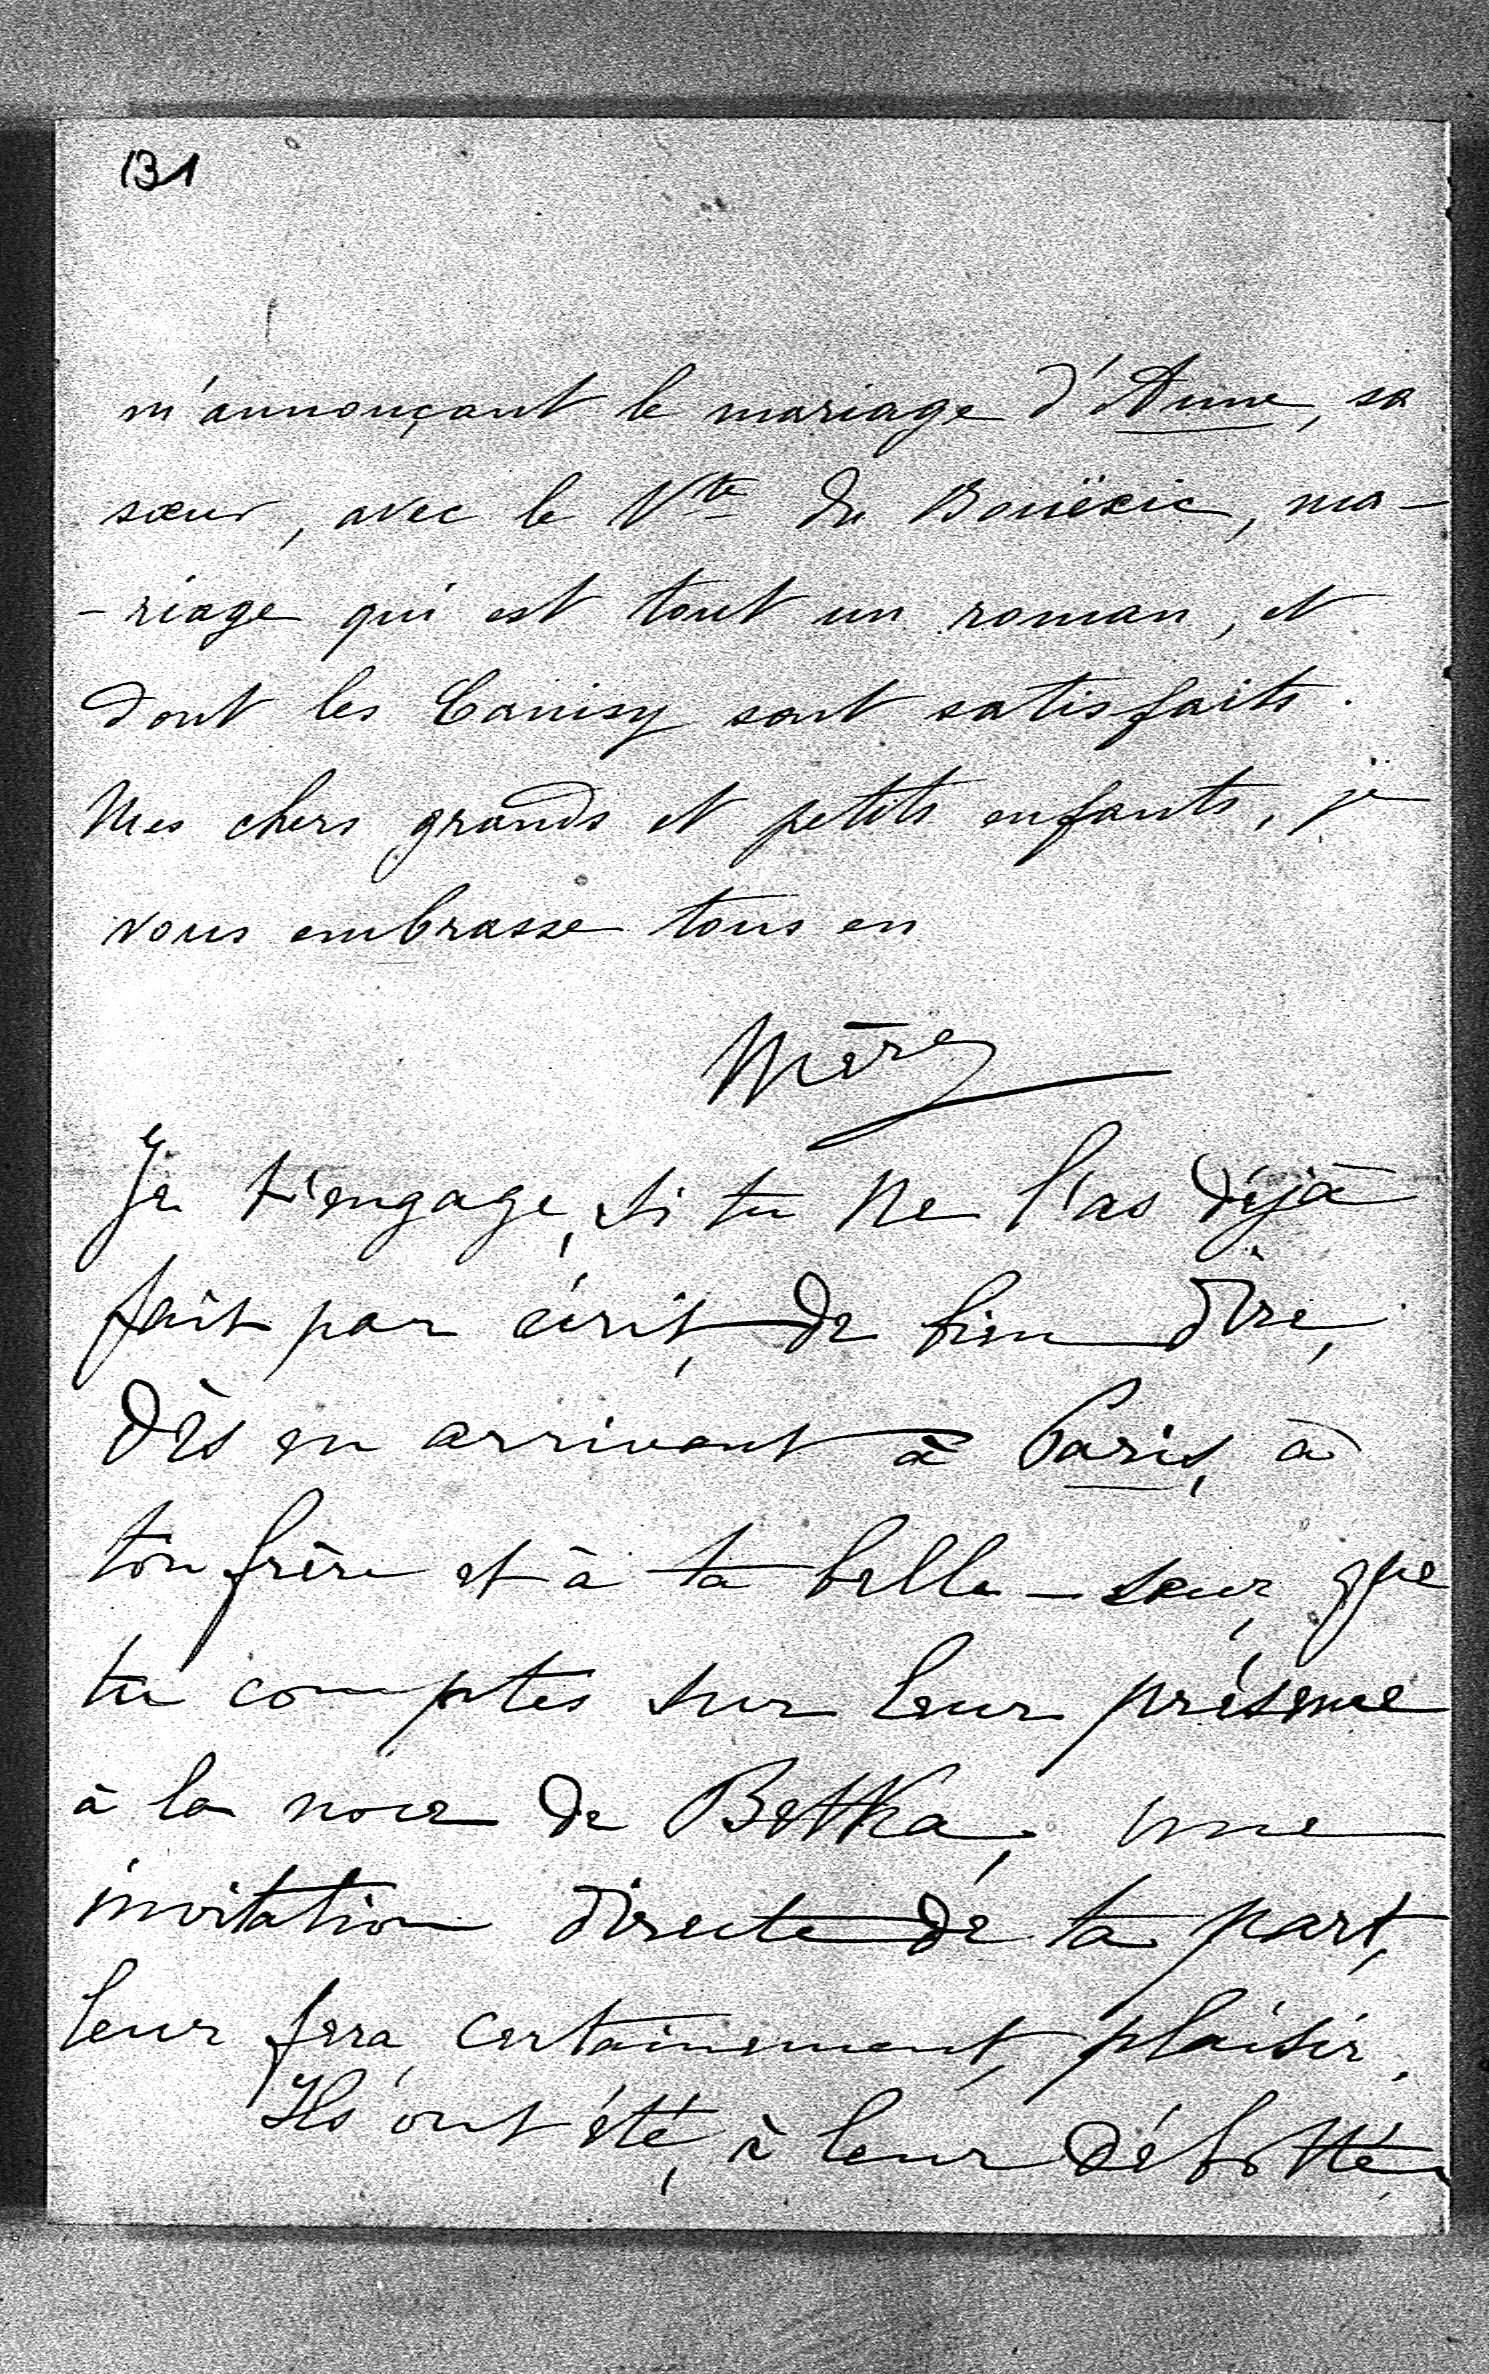 131
m'annonçant le mariage d'Anne, sa
sœur, avec le Vte du Bouëxic, ma-
-riage qui est tout un roman, et
dont les Canisy sont satisfaits.
Mes chers grands et petits enfants, je
vous embrasse tous en
Mère
Je t'engage, si tu ne l'as déjà
fait par écrit, de bien dire,
dès en arrivant à Paris, à
ton frère et à ta belle-sœur, que
tu comptes sur leur présence
à la noce de Bettka, une
invitation directe de ta part,
leur fera, certainement, plaisir.
Ils ont été, à leur débotté,